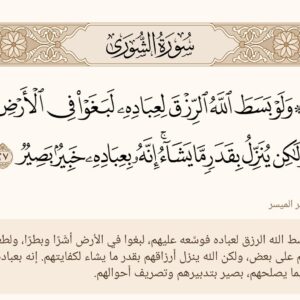 سُورَةُ الشُّورَىٰ
۞ وَلَوْ بَسَطَ ٱللَّهُ ٱلرِّزْقَ لِعِبَادِهِۦ لَبَغَوْا۟ فِى ٱلْأَرْضِ
وَلَٰكِن يُنَزِّلُ بِقَدَرٍ مَّا يَشَآءُ ۚ إِنَّهُۥ بِعِبَادِهِۦ خَبِيرٌۢ بَصِيرٌ ٢٧
الميسر
الله الرزق لعباده فوسَّعه عليهم، لبغوا في الأرض أشَرًا وبطرًا،
على بعض، ولكن الله ينزل أرزاقهم بقدر ما يشاء لكفايتهم. إنه
يصلحهم، بصير بتدبيرهم وتصريف أحوالهم.